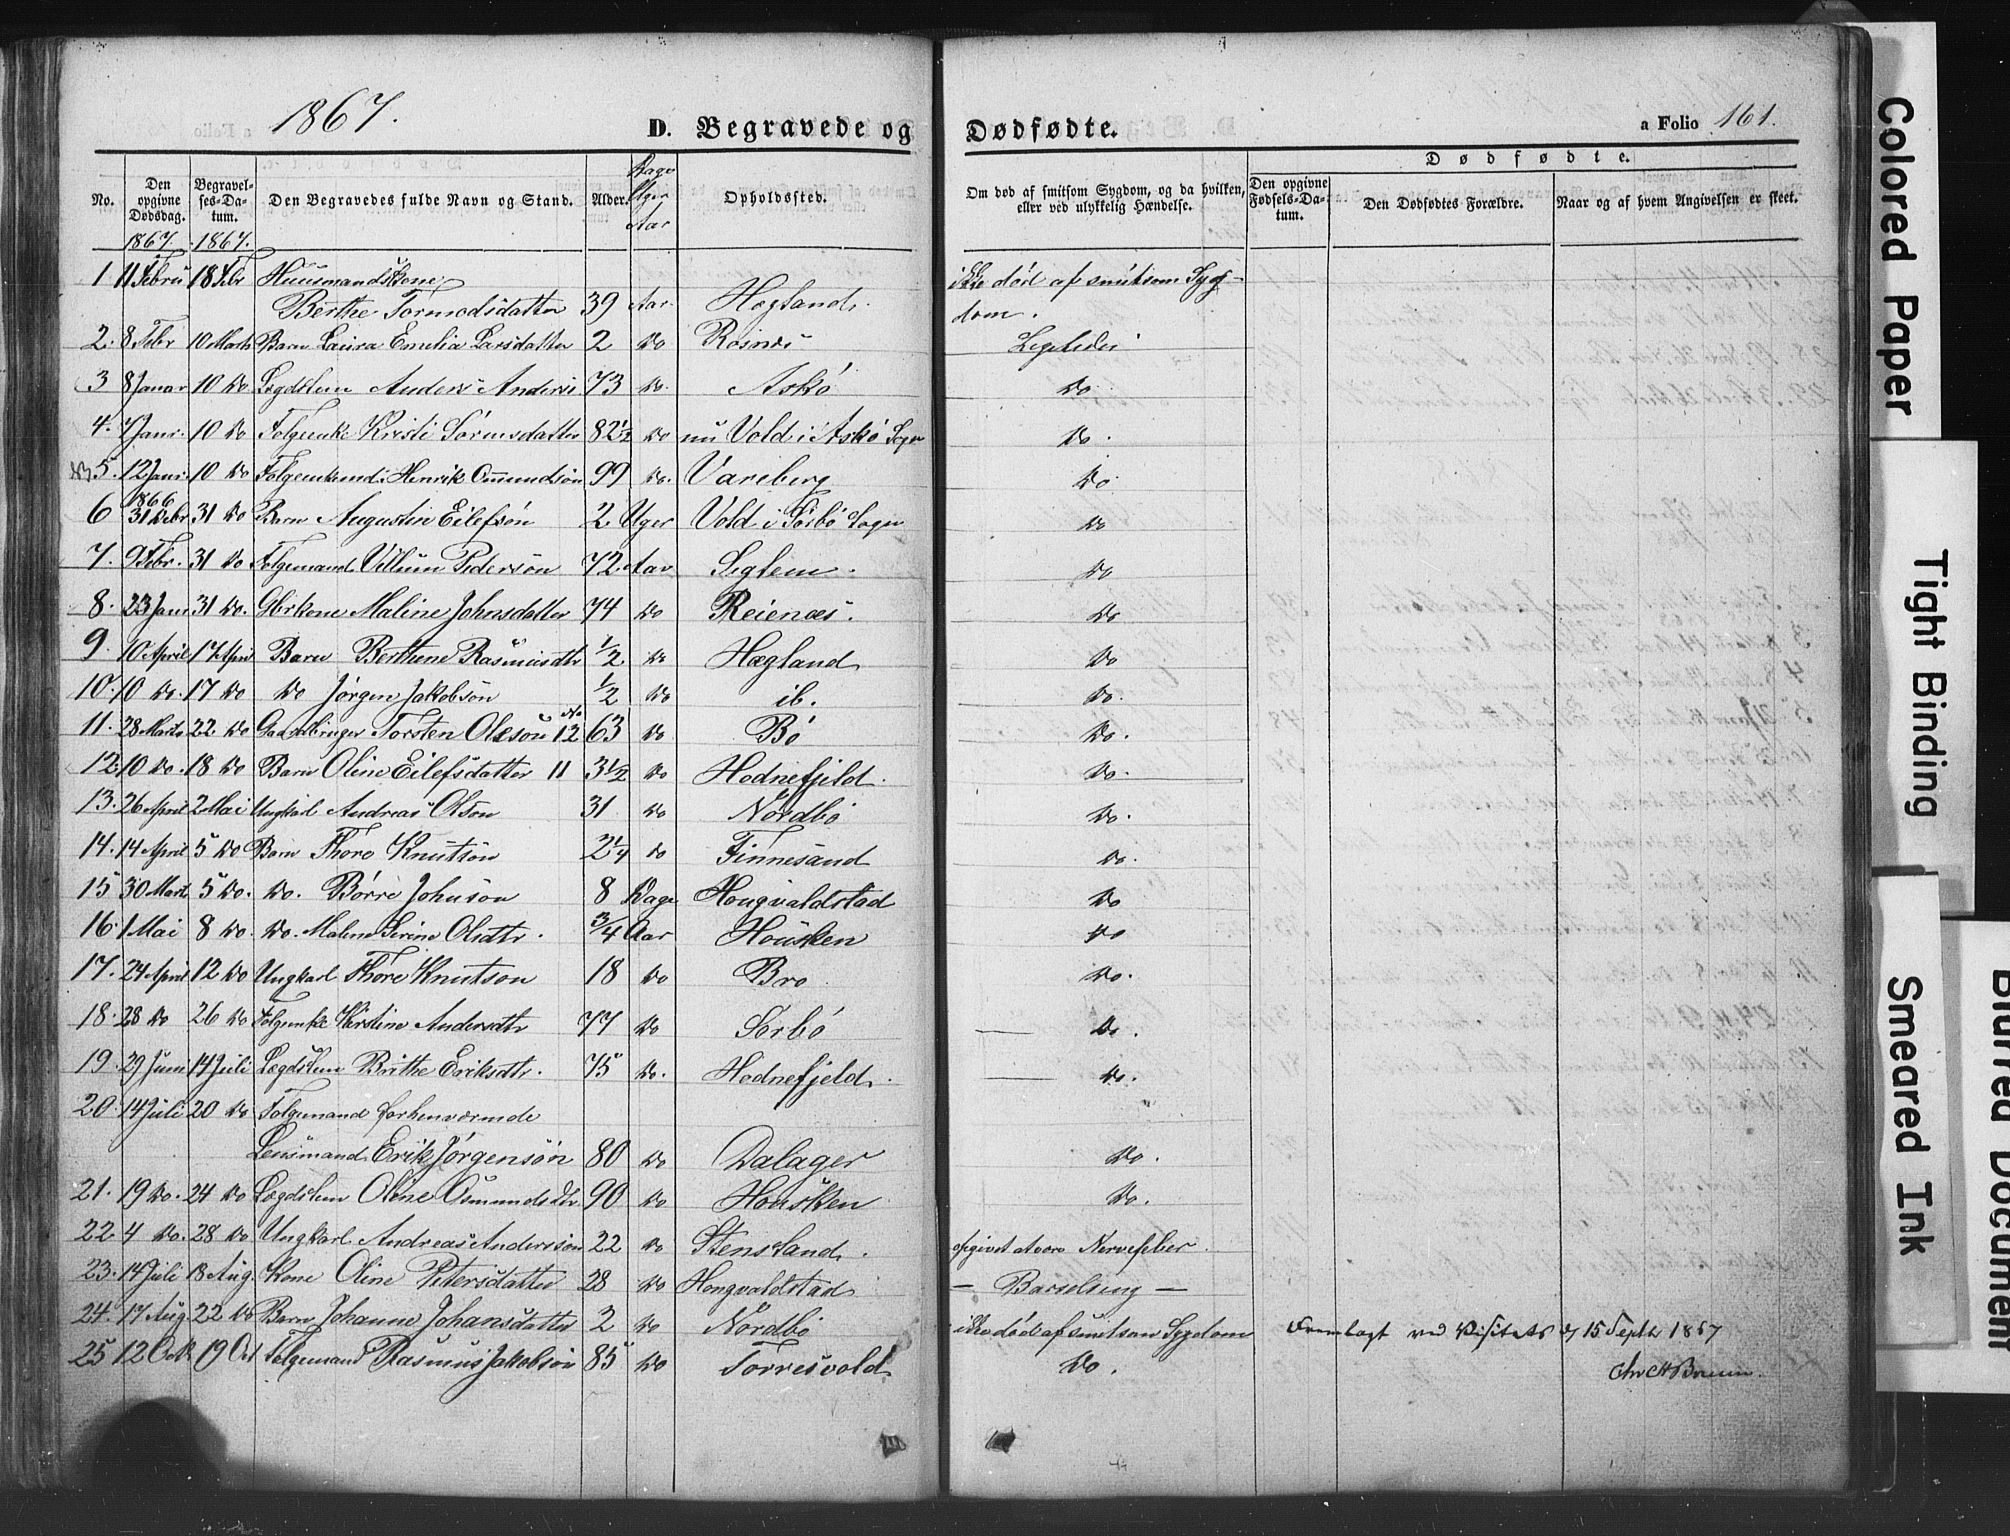 1867.
D. Begravede og Dødfødte.
a Folio 161.
No. Den opgivne Dødsdag. Begravelses-Datum. Den Begravedes fulde Navn og Stand. Alder. Dage Uger Aar Opholdssted. Om død af smitsom Sygdom, og da hvilken, eller ved ulykkelig Hændelse. Dødfødte. Den opgivne Fødsels-Datum. Den Dødfødtes Forældre. Naar og af hvem Angivelsen er skeet.
1867. 1867.
1 11 Febru 18 Febr Huusmandskone ikke död af smitsom Syg-
Berthe Tormodsdatter 39 Aar Hægland. dom.
2. 8 Febr 10 Marts Barn Laura Emelia Larsdatter 2 Do Rosnes Ligeledes
3 8 Januar 10 Do Lægdslem Anders Anders 73 Do. Askö Do
4. 7 Janr. 10 Do Folgeenke Kristi Sörensdatter 82½ Do nu Vold i Askö Sogn Do.
5. 12 Janr. 10 Do Folgemand Henrik Omundsön 99 Do. Vareberg Do
1866
6 31 Debr 31 Do Barn Augustin Eilefsön 2 Uger Vold i Sörbö Sogn Do
7. 9 Febr. 31 Do Folgemand Villum Pedersön 72 Aar Seglem. Do
8. 23 Janr 31 Do. Gbrkone Maline Johnsdatter 74 Do Reienæs. Do
9 10 April 17 April Barn Berthene Rasmusdtr ½ Do Hægland Do
10. 10 Do. 17 Do Do Jørgen Jakobsön ½ Do ib. Do.
11. 28 Marts 22 Do Gaardbruger Torsten Olesön No 12 63 Do Bö Do.
12 10 Do. 18 Do Barn Oline Eilefsdatter 11 3½ Do Hodnefjeld. Do.
13. 26 April 2 Mai Ungkarl Andreas Olsön 31 Do Nordbö Do.
14. 14 April 5 Do Barn Thore Knutsön 2¼ Do Finnesand Do.
15 30 Marts 5 Do. Do. Börre Johnson 8 Dage Hougvaldstad Do
16. 1 Mai 8 Do Do. Malene Serine Olsdtr. ¾ Aar Housken Do
17. 24 April 12 Do Ungkarl Thore Knutson 18 Do Bro Do.
18. 28 Do 26 Do Folgeenke Kirstine Andersdtr 77 Do Sörbö Do.
19. 29 Juni 14 Juli Lægdslem Brithe Eriksdtr. 75 Do. Hodnefjeld. Do.
20. 14 Juli 20 Do Folgemand forhenværende
Lensmand Erik Jörgensön 80 Do Dalager Do.
21. 19 Do. 24 Do Lægdslem Oline Osmundsdtr 90 Do Housken Do.
22. 4 Do. 28 Do Ungkarl Andreas Anderssön 22 Do Stensland. opgivet at være Nervefeber.
23. 14 Juli 18 Aug. Kone Oline Petersdatter 28 Do Hongvaldstad — Barselseng —
24. 17 Aug. 22 Do Barn Johanne Johansdatter 2 Do Nordbö ikke död af smitsom Sygdom Fremlagt ved Visitats d 15 Septb 1867
25 12 Oct 19 Oct Folgemand Rasmus Jakobsön 85 Do Torresvold Do.
Colored Paper
Tight Binding
Smeared Ink
Blurred Document